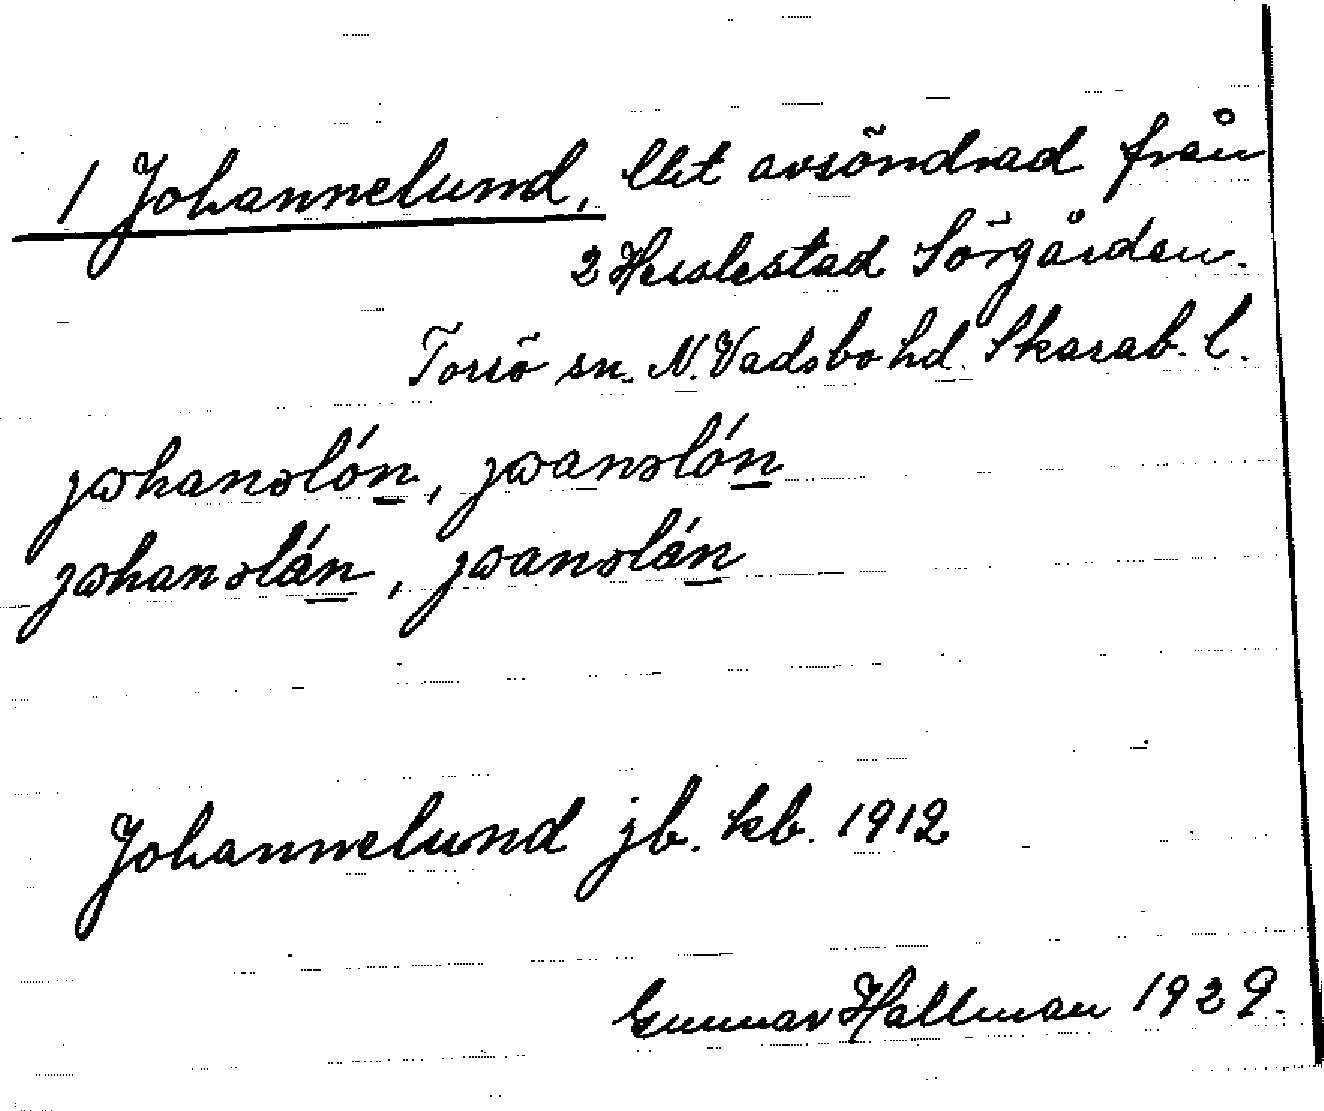 1 Johannelund, lht avsöndrad från
2 Herslestad Sörgården.
Torsö sn. N. Vadsbo hd. Skarab. l.
jɷhanəlón, jɷanəlón
jɷhanəlán, jɷanəlán
Johannelund jb. kb. 1912
Gunnar Hallman 1929.